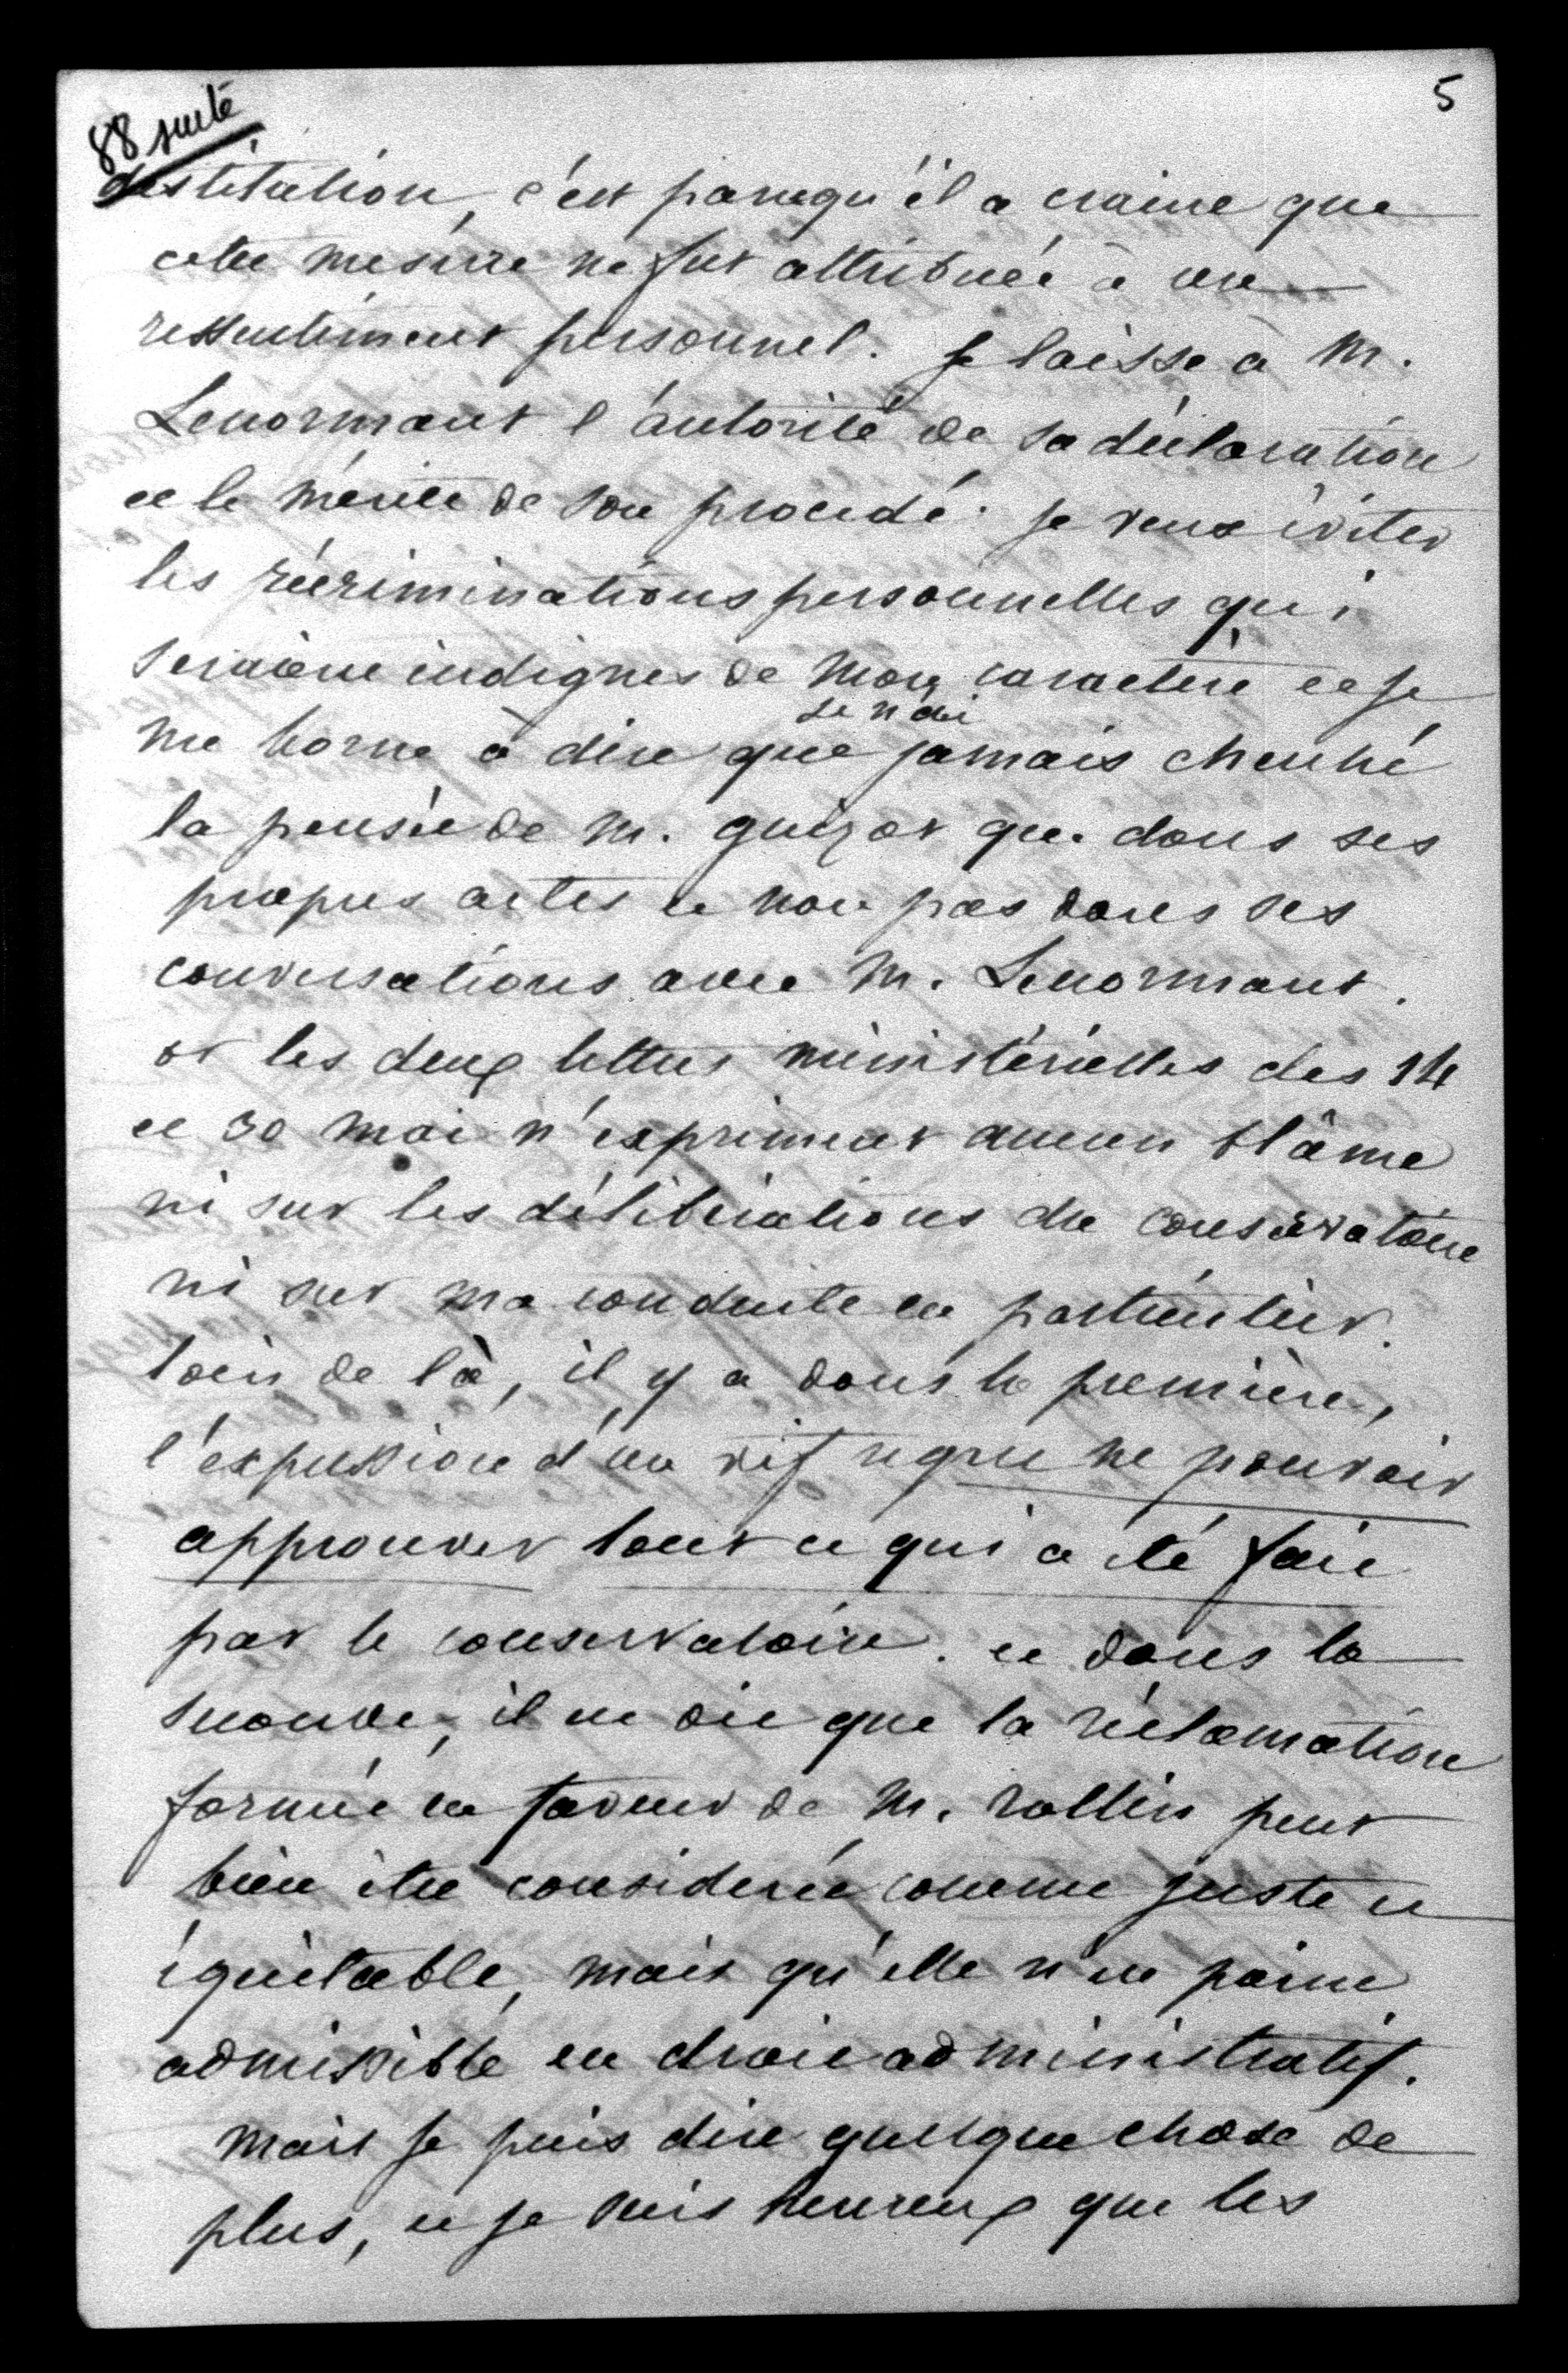 5
88 suite
destitution, c'est parcequ'il a craint que
cette mesure ne fut attribuée à un
ressentiment personnel. Je laisse à M.
Lenormant l'autorité de sa déclaration
et le mérite de son procédé. je veux éviter
les récriminations personnelles qui
seraient indignes de mon caractère et je
me borne à dire que je n'ai jamais cherché
la pensée de M. guizot que dans ses
propres actes et non pas dans ses
conversations avec M. Lenormant.
or les deux lettres ministérielles des 14
et 30 mai n'expriment aucun blâme
ni sur les délibérations du conservatoire
ni sur ma conduite en particulier.
loin de là, il y a dans la première,
l'expression d'un vif regret ne pouvoir
approuver tout ce qui a été fait
par le conservatoire. et dans la
seconde, il est dit que la réclamation
formée en faveur de M. rollin peut
bien être considerée comme juste et
équitable, mais qu'elle n'est point
admissible en droit administratif.
mais je puis dire quelque chose de
plus, et je suis heureux que les